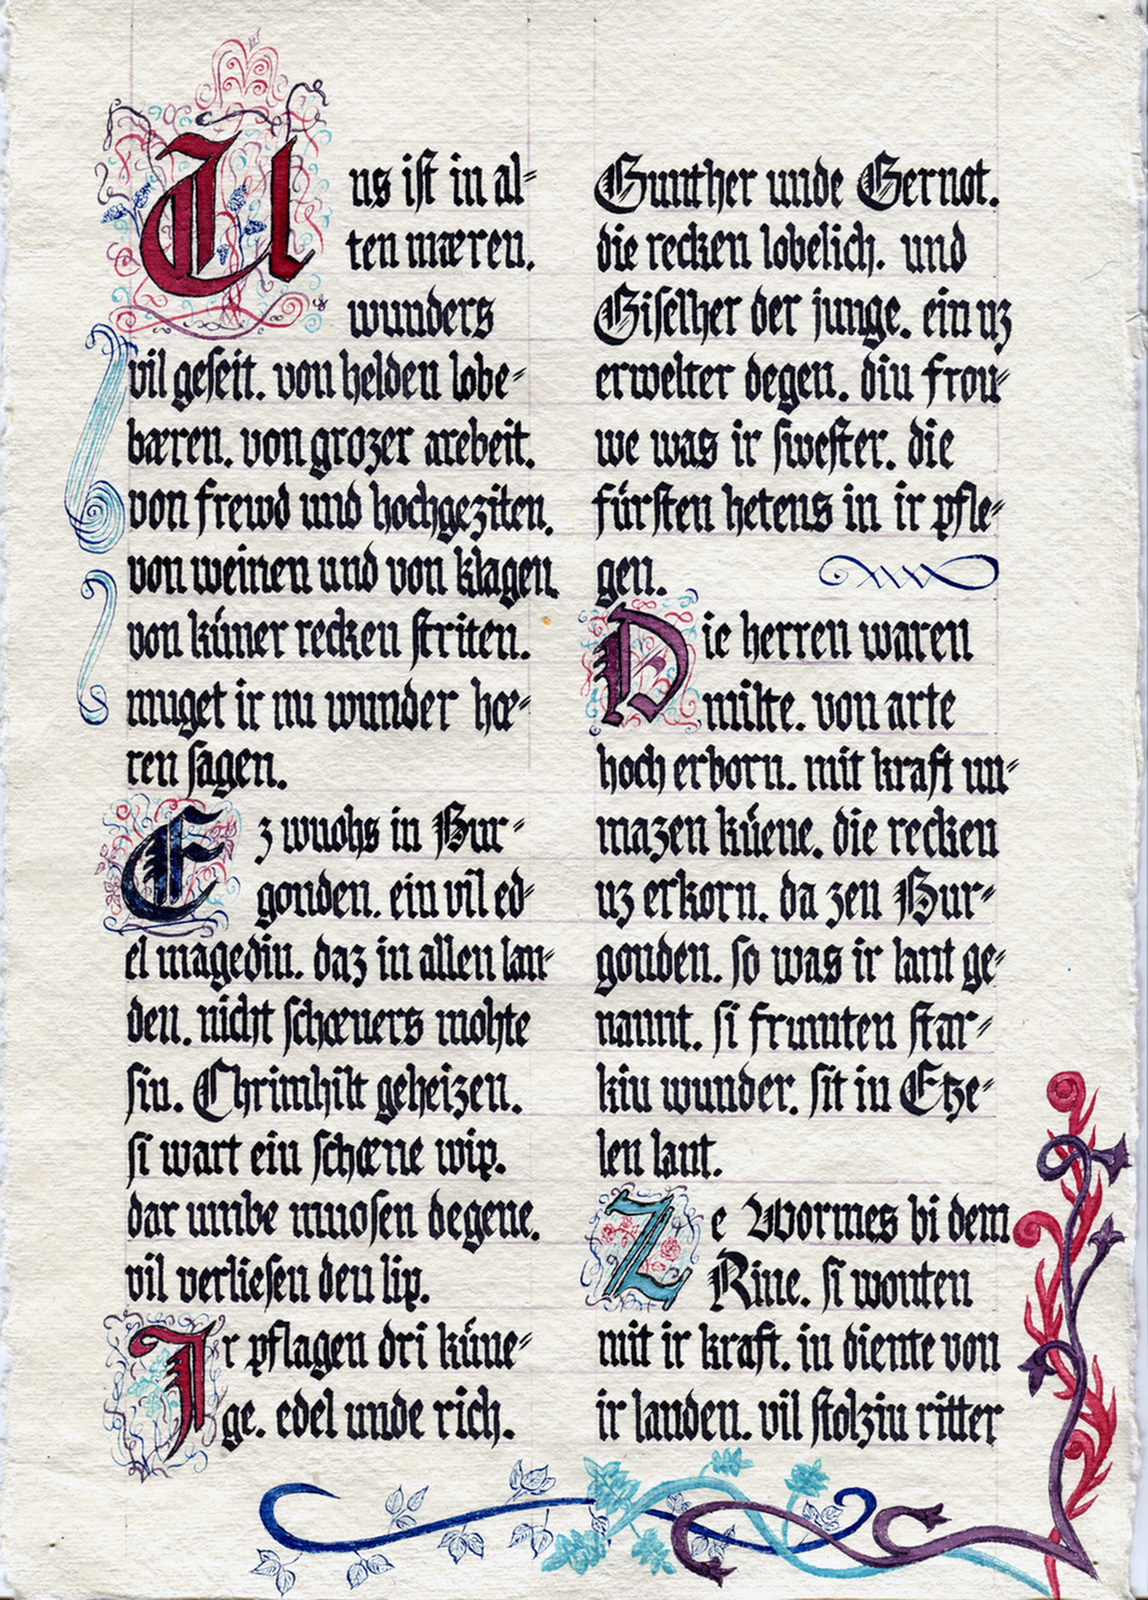 Uns ist in al-
ten mæren.
wunders
vil geseit. von helden lobe-
bæren. von grozer arebeit.
von frewd und hochgeziten.
von weinen und von klagen.
von kůner recken striten.
muget ir nu wunder hœ-
ren sagen.
Ez wuohs in Bur-
gonden. ein vil ed-
el magedin. daz in allen lan-
den. nicht schœners mohte
sin. Chrimhilt geheizen.
si wart ein schœne wip.
dar umbe muosen degene.
vil verliesen den lip.
Ir pflagen dri küne-
ge. edel unde rich.
Gunther unde Gernot.
die recken lobelich. und
Giselher der junge. ein uz
erwelter degen. diu frou-
we was ir swester. die
fürsten hetens in ir pfle-
gen.
Die herren waren
milte. von arte
hoch erborn. mit kraft un-
mazen küene. die recken
uz erkorn. da zen Bur-
gonden. so was ir lant ge-
nannt. si frumten star-
kiu wunder. sit in Etze-
len lant.
Ze Wormes bi dem
Rine. si wonten
mit ir kraft. in diente von
ir landen. vil stolziu ritter